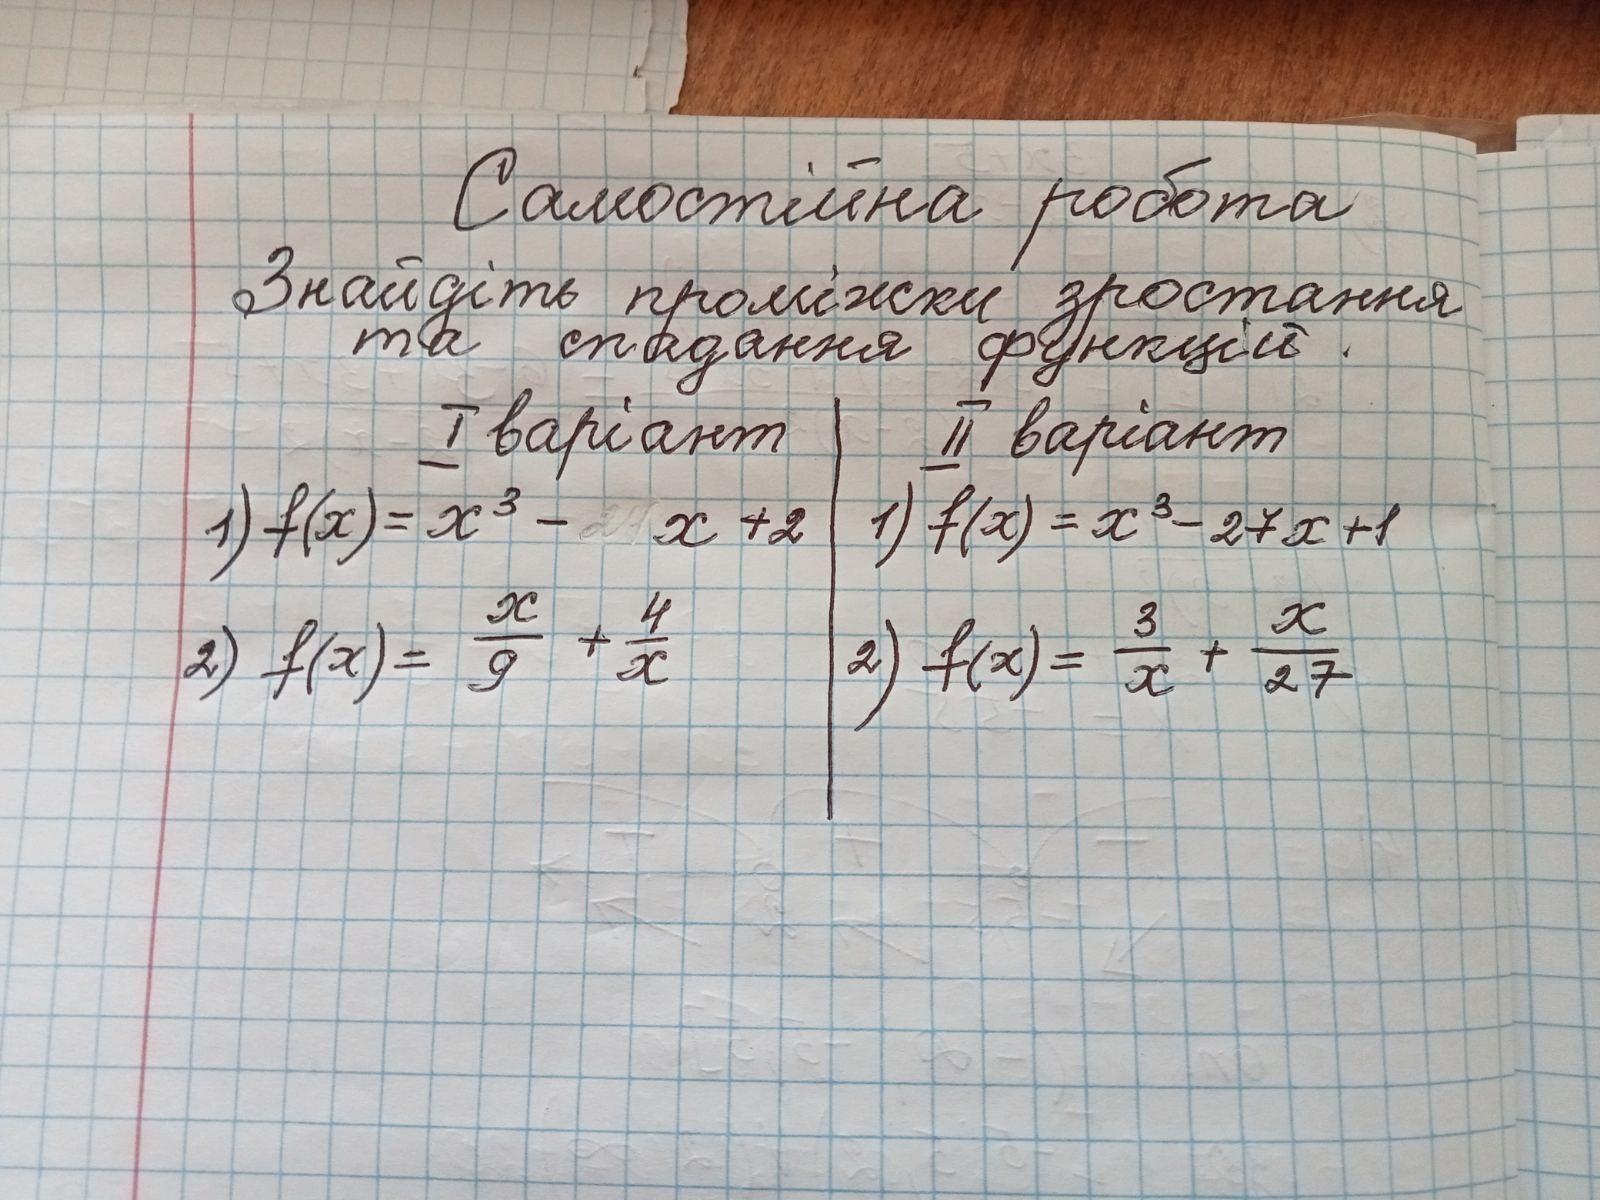 Самостійна робота
Знайдіть проміжки зростання
та спадання функцій.
I варіант
1) f(x) = x³ - x + 2
2) f(x) = x/9 + 4/x
II варіант
1) f(x) = x³ - 27x + 1
2) f(x) = 3/x + x/27